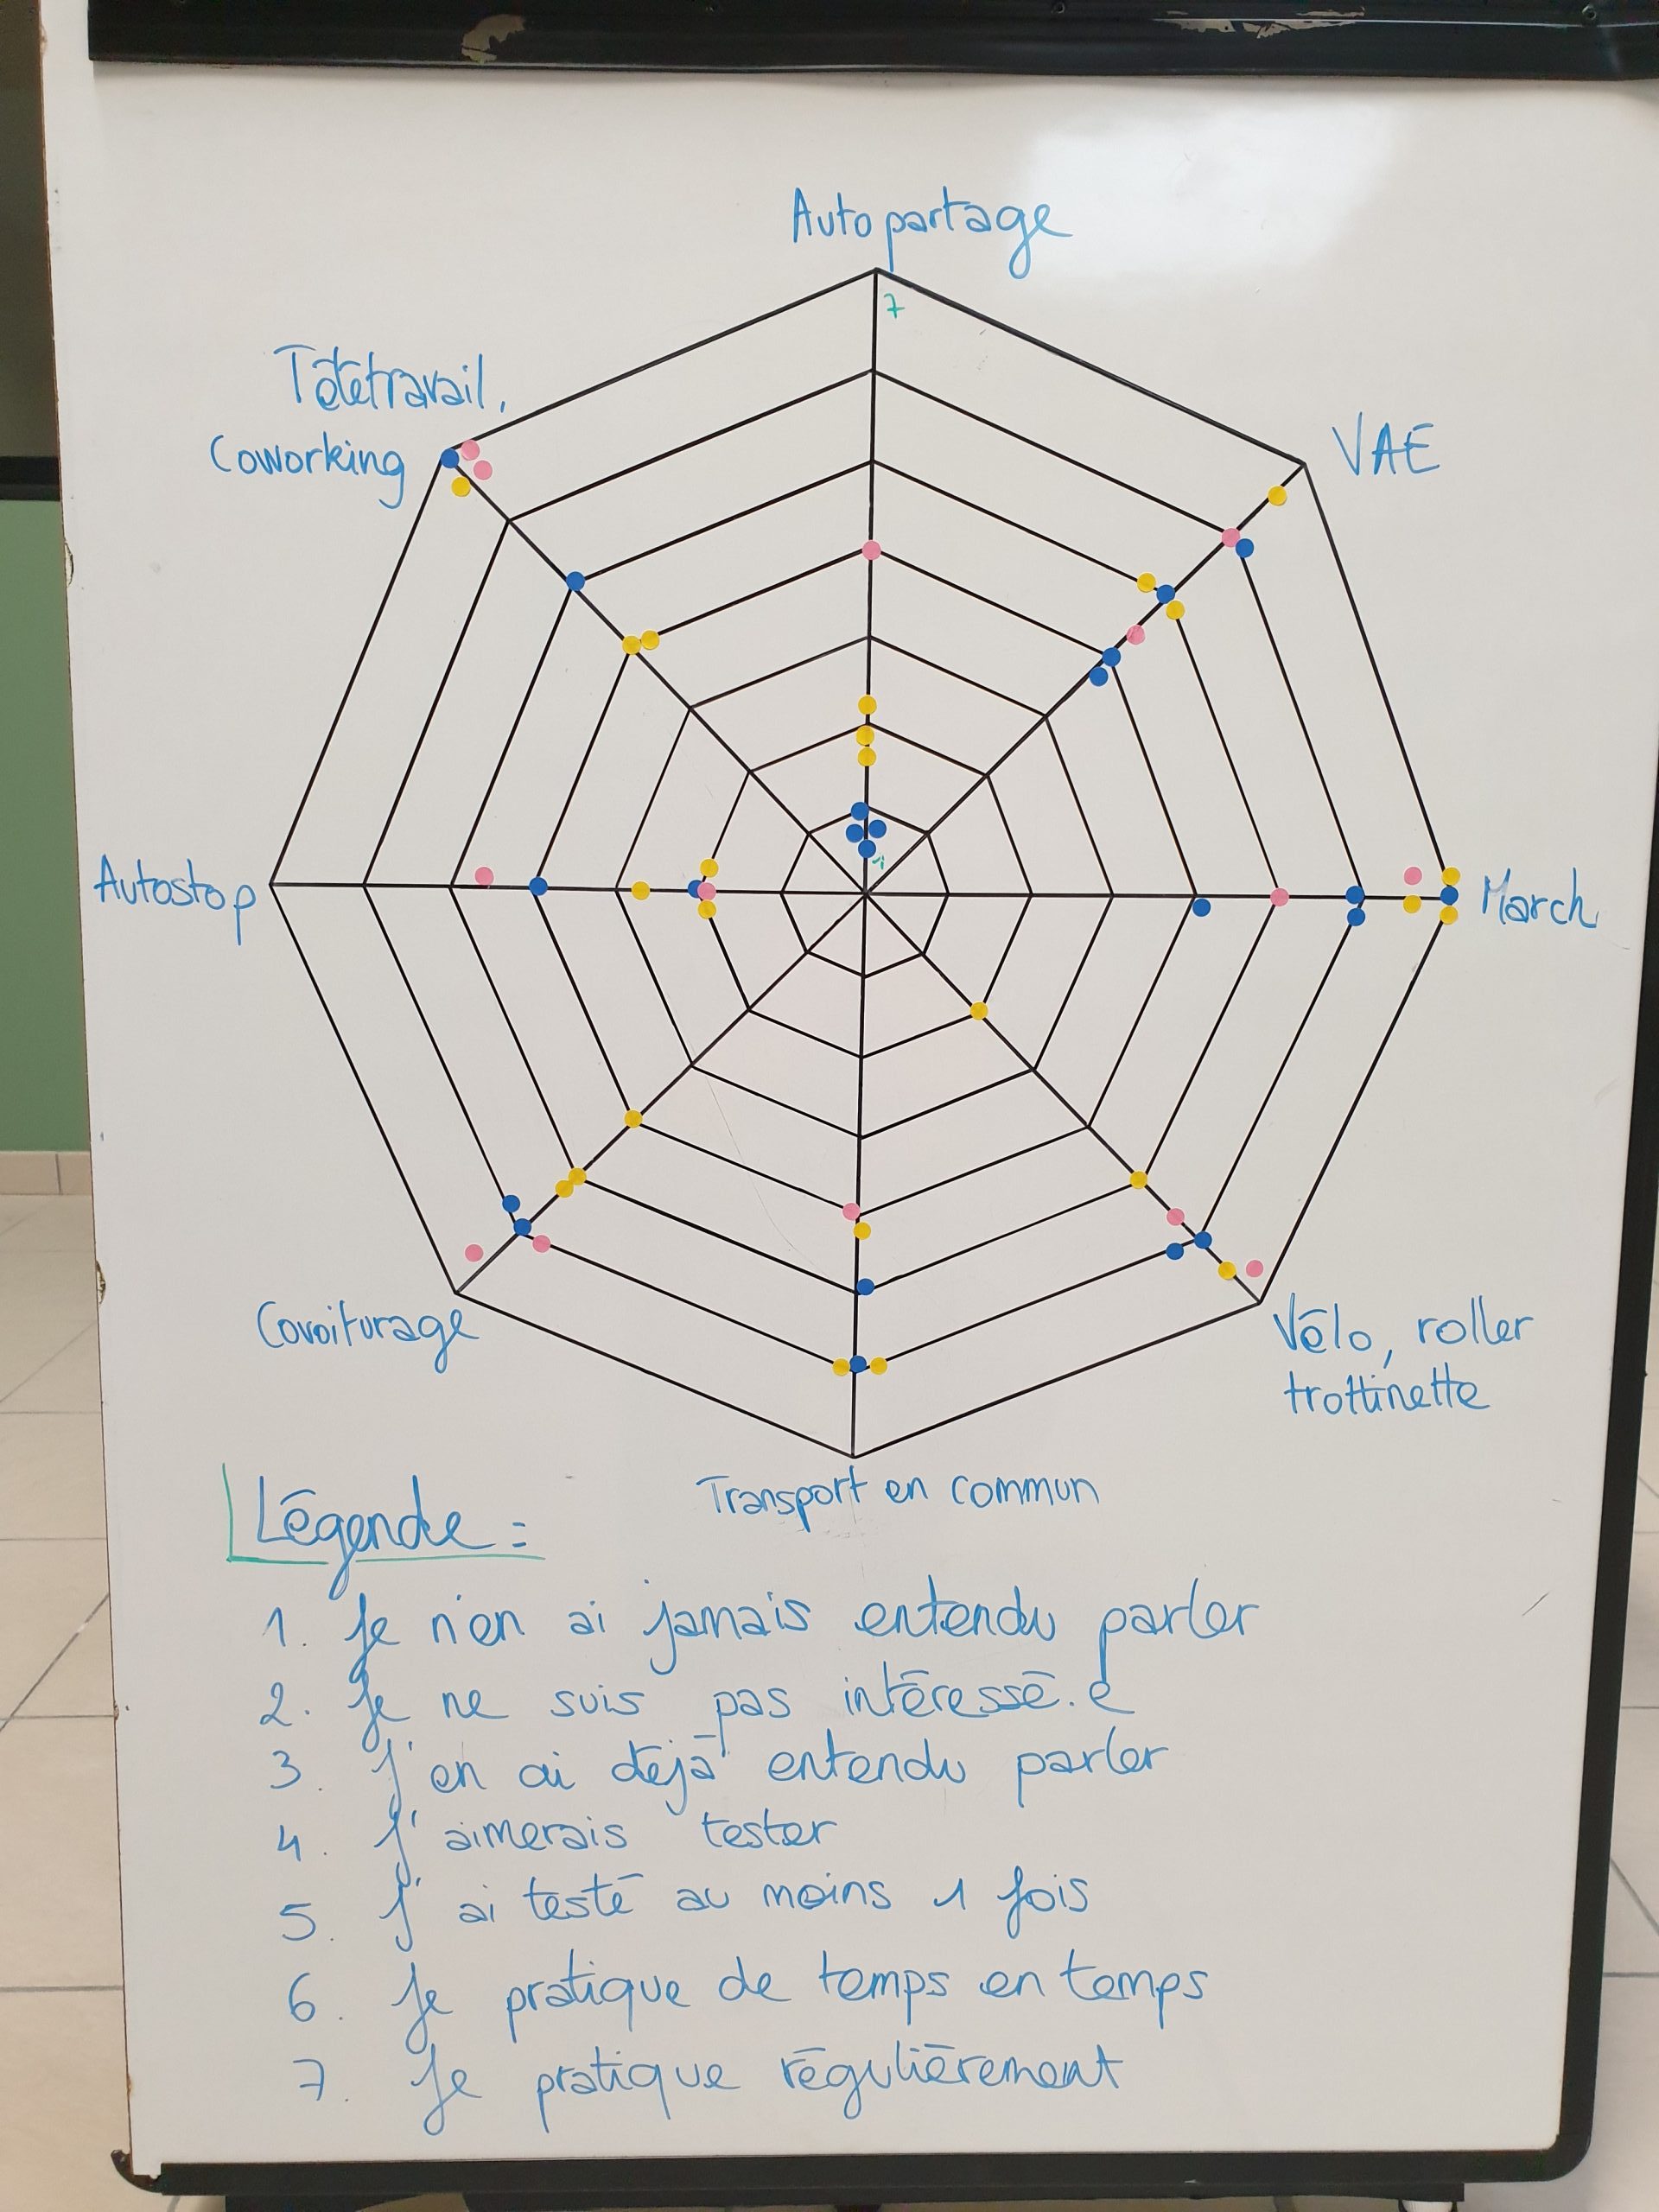 Autopartage
7
Télétravail,
Coworking
VAE
1
Autostop
March
Covoiturage
Vélo, roller
trottinette
Transport en commun
Légende :
1. Je n'en ai jamais entendu parler
2. Je ne suis pas intéressé.e
3. J'en ai déjà entendu parler
4. J'aimerais tester
5. J'ai testé au moins 1 fois
6. Je pratique de temps en temps
7. Je pratique régulièrement